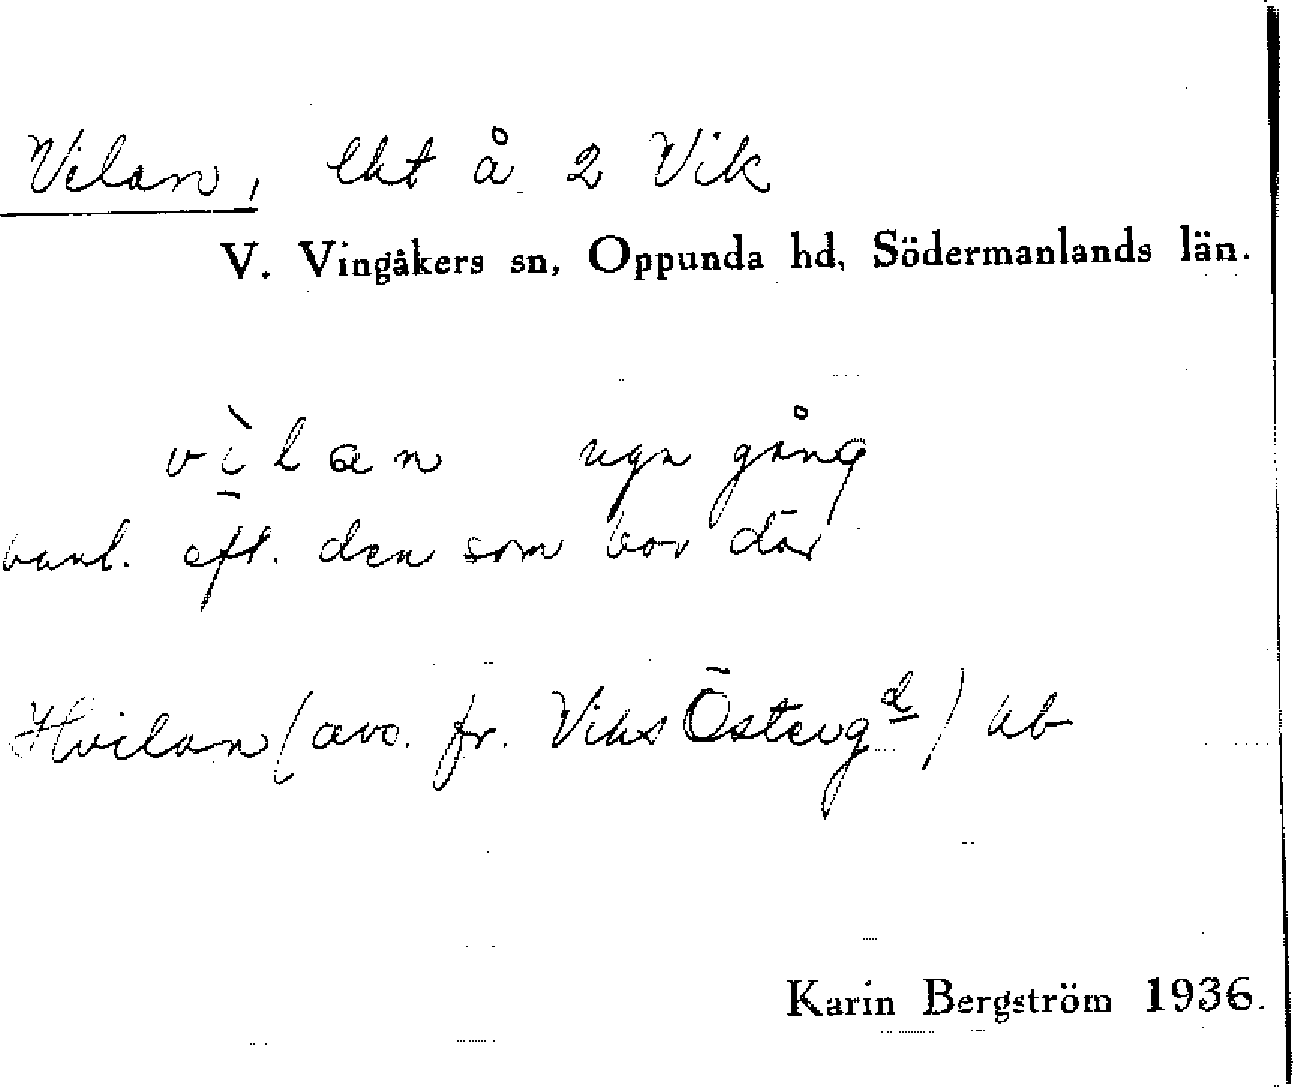 Vilan, lht å 2 Vik
V. Vingåkers sn, Oppunda hd, Södermanlands län.
vìlan ngn gång
vanl. eft. den som bor där
Hvilan (avs. fr. Viks Österg^d) kb
Karin Bergström 1936.